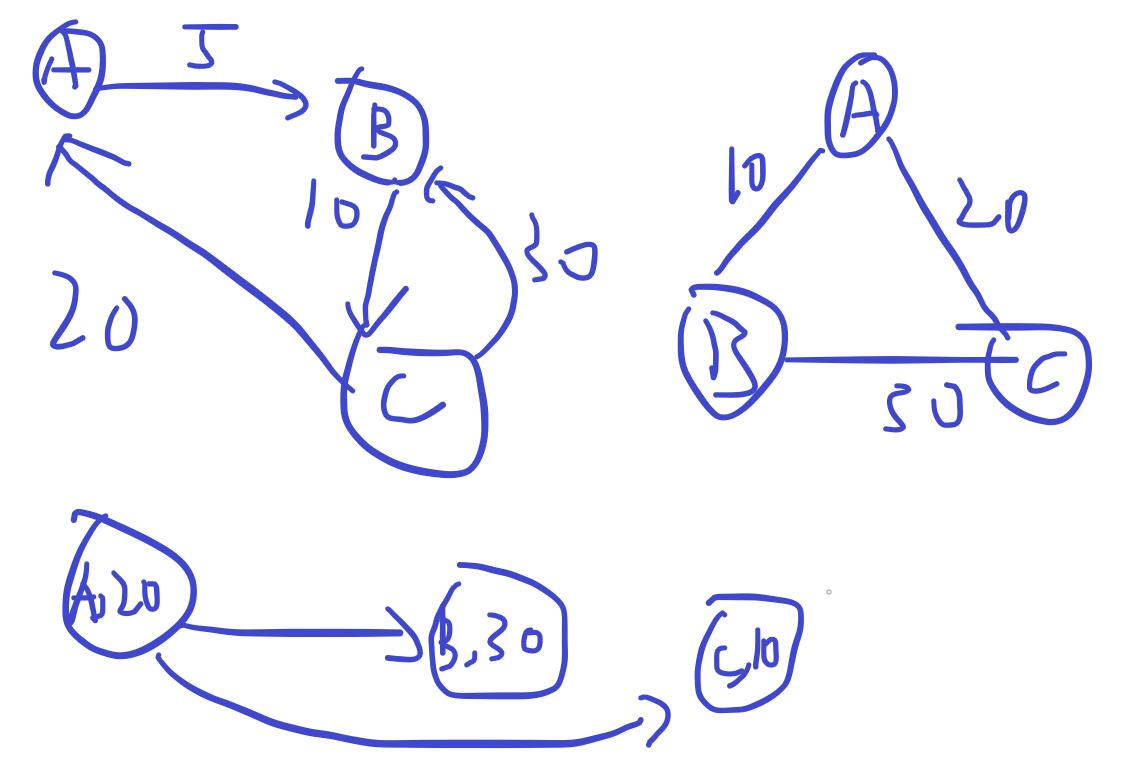 A
5
B
10
30
20
C
A
10
20
B
30
C
A,20
B,30
C,10